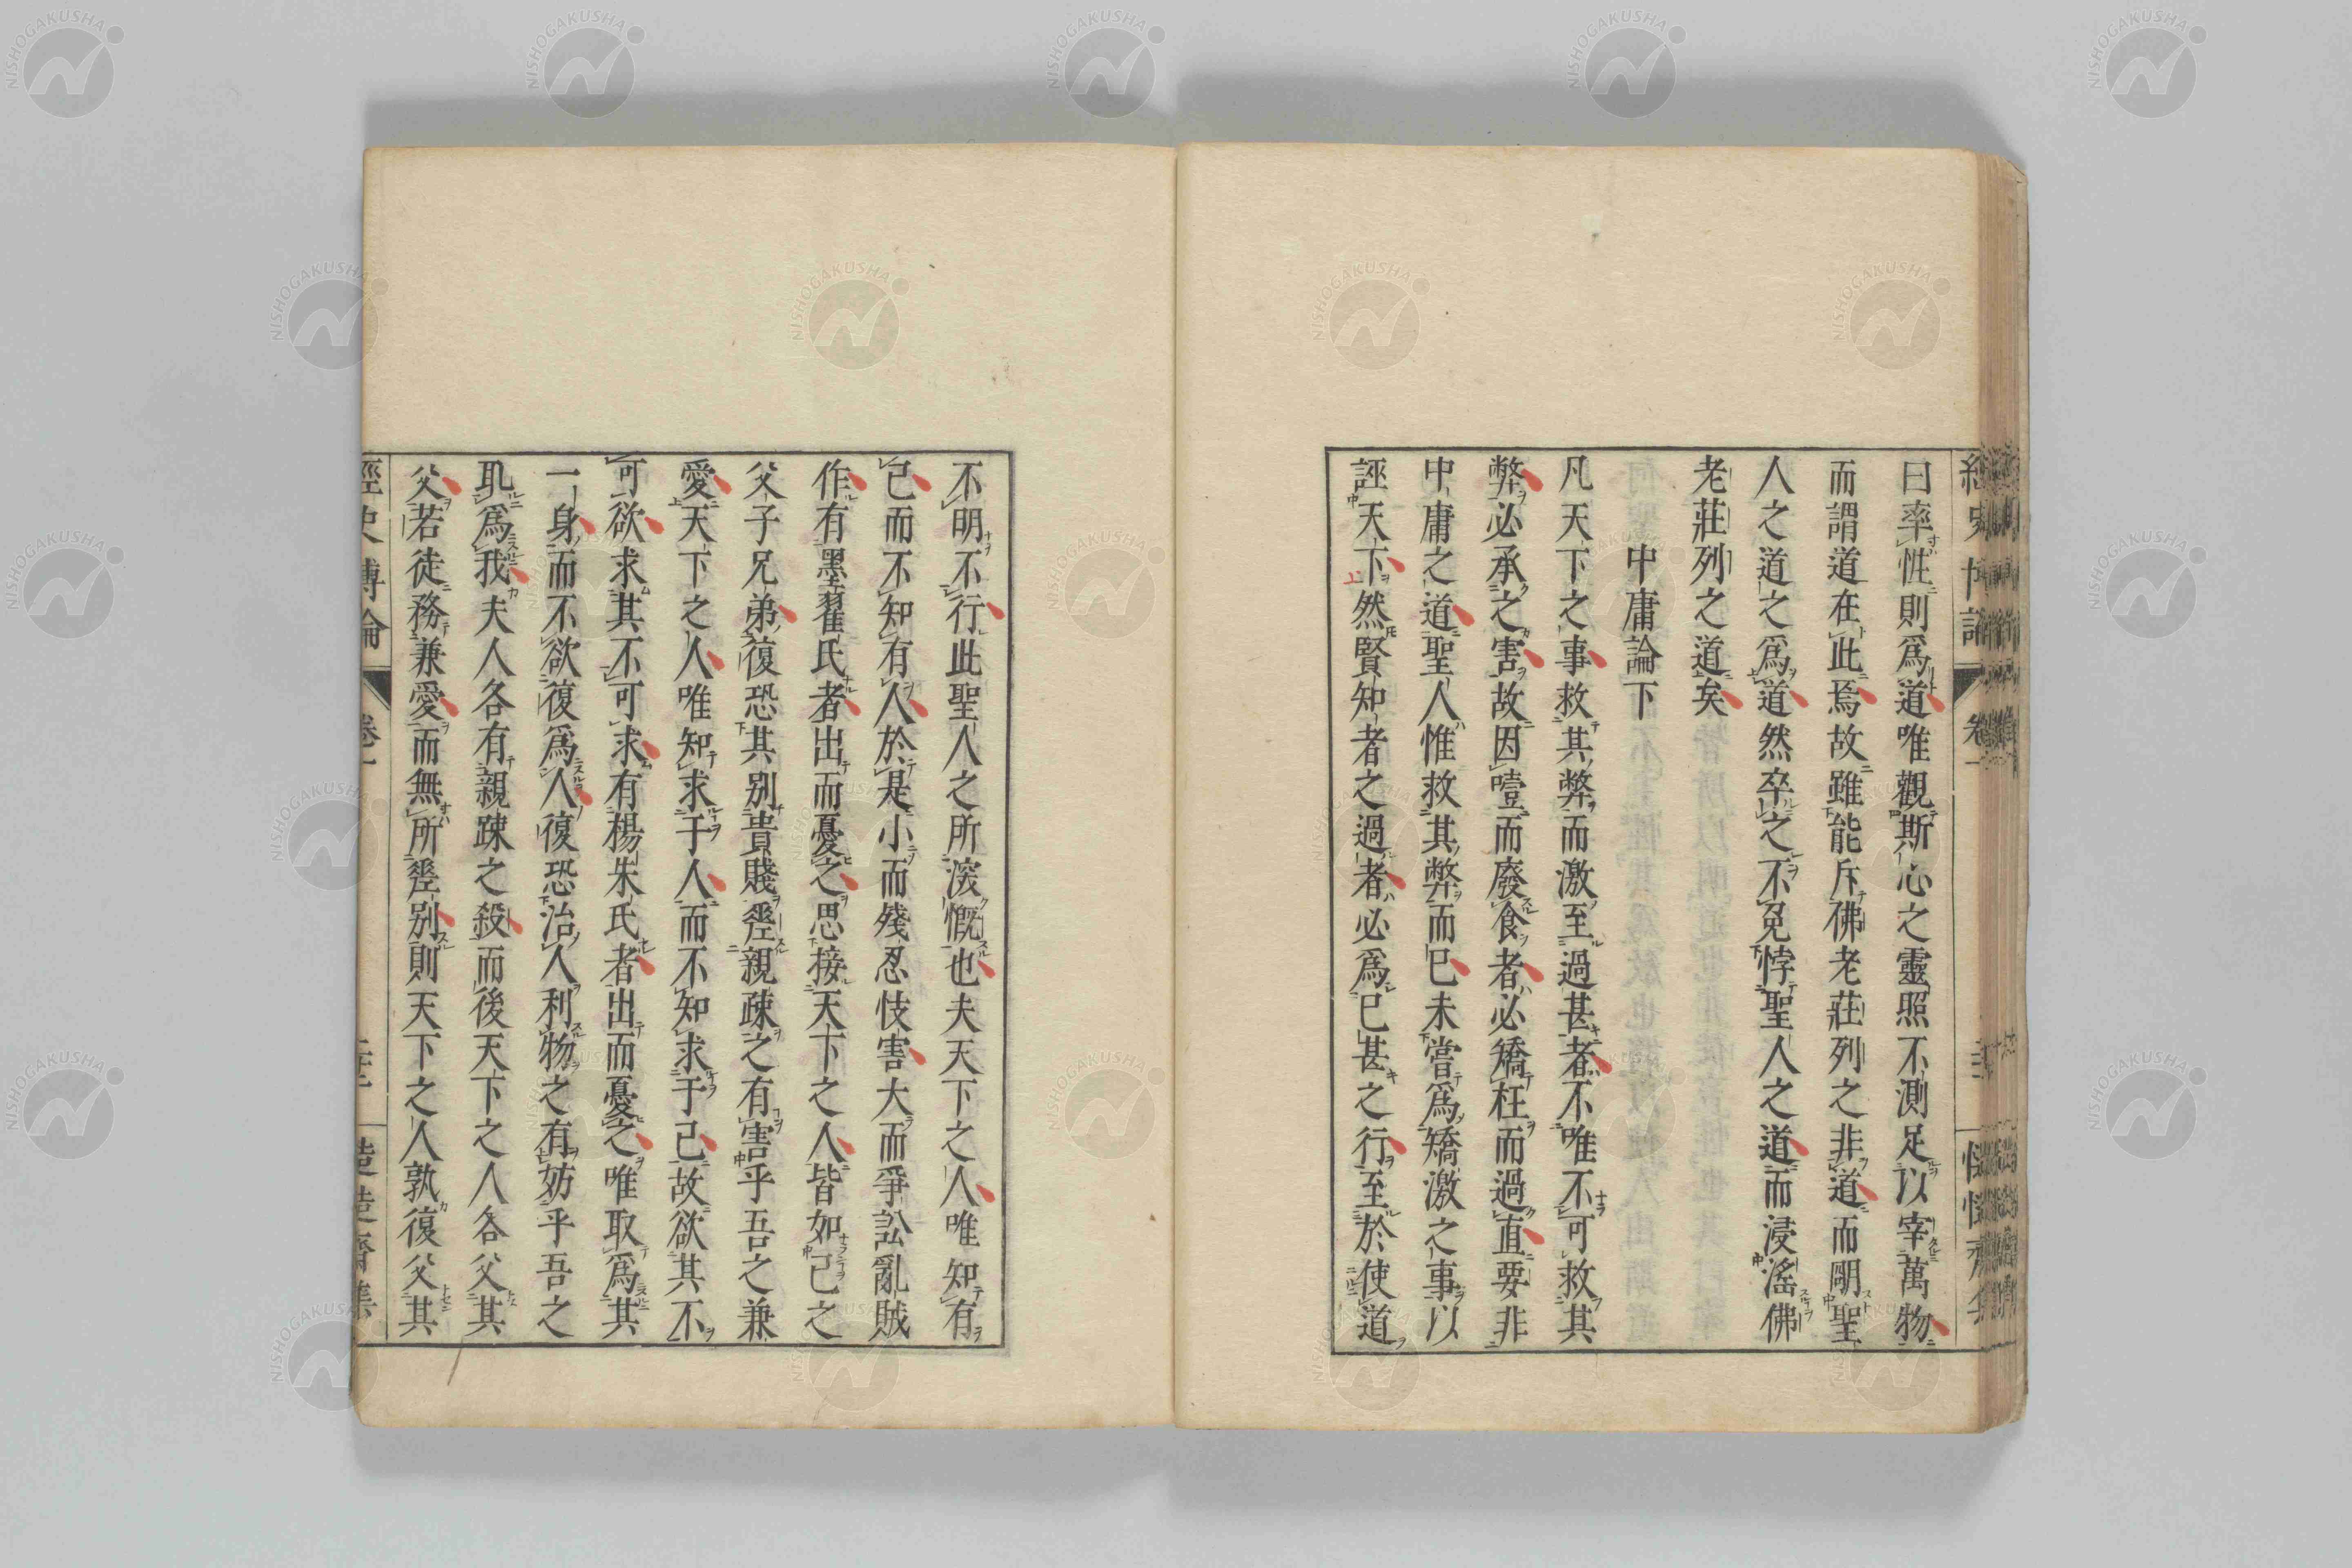 曰率性則爲道唯觀斯心之靈照不測足以宰萬物
而謂道在此焉故雖能斥佛老莊列之非道而剛聖
人之道之爲道然卒之不免悖聖人之道而浸滛佛
老莊列之道矣
中庸論下
凡天下之事救其弊而激至過甚者不唯不可救其
弊必承之害故因噎而廢食者必矯枉而過直要非
中庸之道聖人惟救其弊而已未嘗爲矯激之事以
誣天下然賢知者之過者必爲已甚之行至於使道
不明不行此聖人之所深慨也夫天下之人唯知有
己而不知有人於是小而殘忍忮害大而爭訟亂賊
作有墨翟氏者出而憂之思接天下之人皆如己之
父子兄弟復恐其別貴賤登親疎之有害乎吾之兼
愛天下之人唯知求于人而不知求于己故欲其不
可欲求其不可求有楊朱氏者出而憂之唯取爲其
一身而不欲復爲人復恐治人利物之有妨乎吾之
爲我夫人各有親疎之殺而後天下之人各父其
父若徒務兼愛而無所登別則天下之人孰復父其
經史博論
卷一
NISHOGAKUSHA